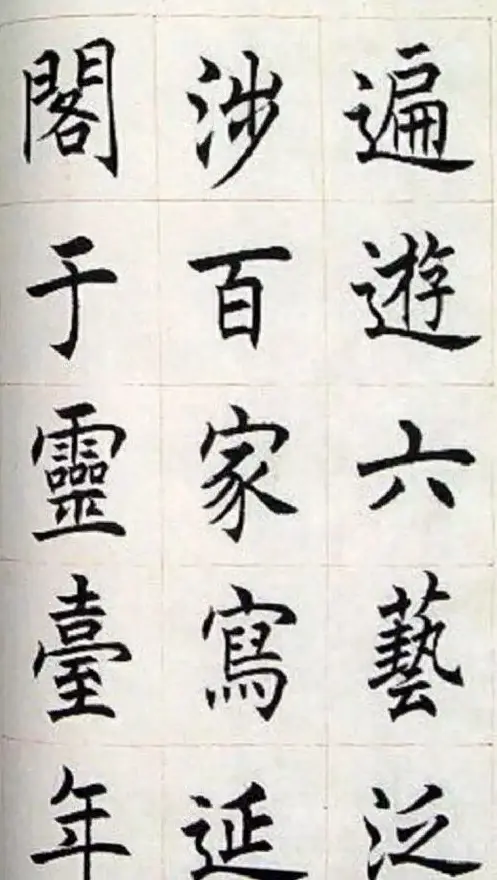 遍遊六藝泛
涉百家寫延
閣于靈臺年